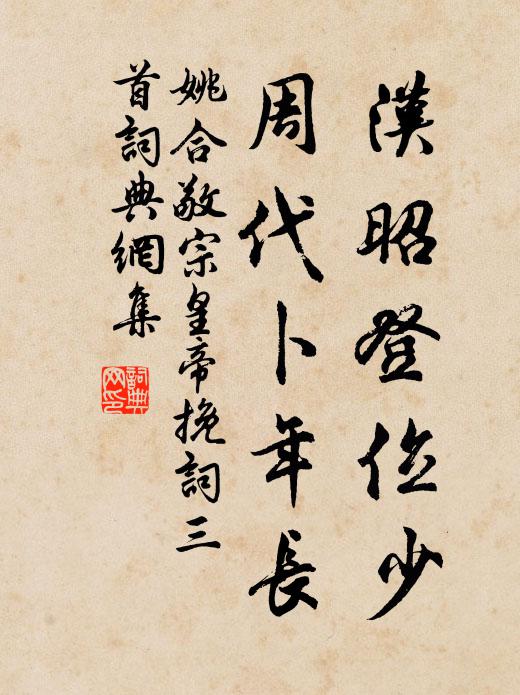 漢昭登位少
周代卜年長
姚合敬宗皇帝挽詞三
首詞典網集
詞典
网印